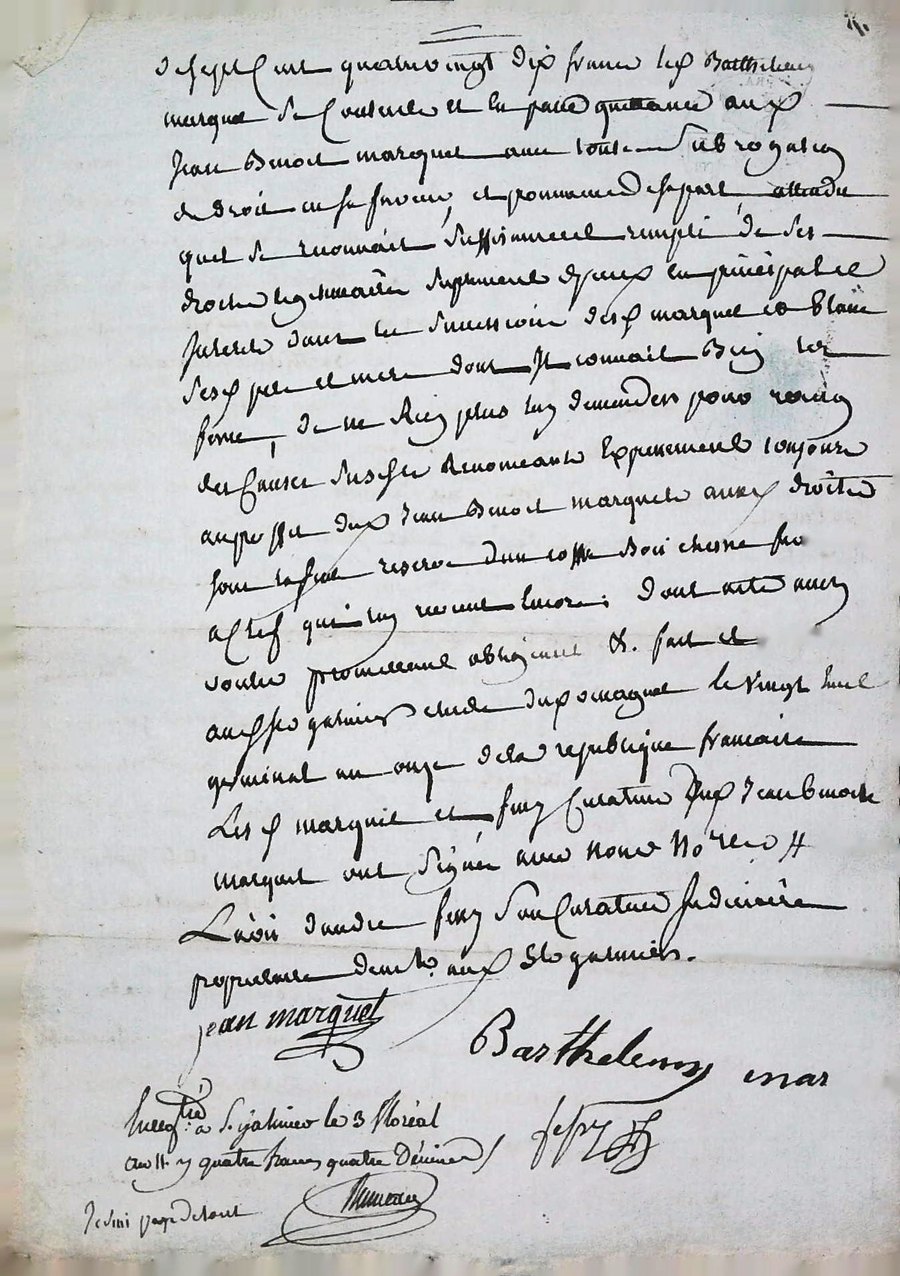 de sept cent quatre vingt dix francs led. Barthelemy
marquet se Contente et en passe quittance aud.
Jean Benoit marquet avec toute Subrogation
de droit en sa faveur, et comme desepart attendu
quel se reconnait suffisament rempli de ses
droits legitimaires suplement diceux en principal et
Interets dans les successions desd. marquet et blanc
sesd. pere et mere dont Il connait Bien les
forces, de ne Rien plus luy demander pour raison
des Causes susdites Renonceant Expressement toujours
au proffit dud. Jean Benoit marquet auxd. droits
sous la seule reserve dun coffre Bois chesne
a clef quil luy revient encore; dont acte avec
voulu promettant obligeant &. fait et
aud. st galmier etude dud. romagnet le vingt huit
germinal an onze de la republique francaise
Lesd. marquet et fessy Curateur dud. Jean Benoit
marquet ont signés avec nous Nore
andre fessy son Curateur Judiciaire
propriétaire demt. aud. St galmier.
jean marquet
Barthelemy mar
fessy
Enregtré a St galmier le 3 floréal
an 11. r quatre francs quatre Décimes